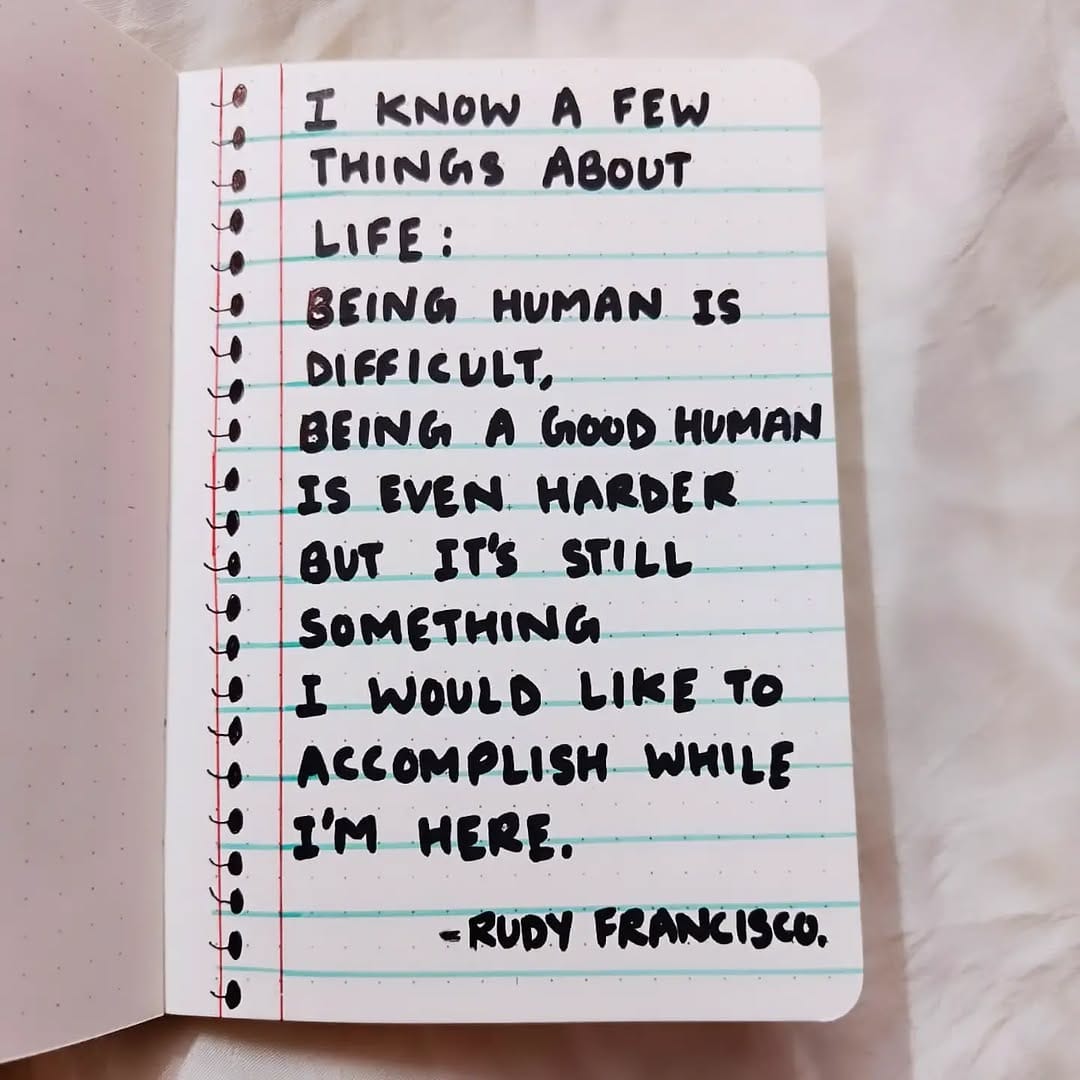 I KNOW A FEW
THINGS ABOUT
LIFE:
BEING HUMAN IS
DIFFICULT,
BEING A GOOD HUMAN
IS EVEN HARDER
BUT IT'S STILL
SOMETHING
I WOULD LIKE TO
ACCOMPLISH WHILE
I'M HERE.
-RUDY FRANCISCO.